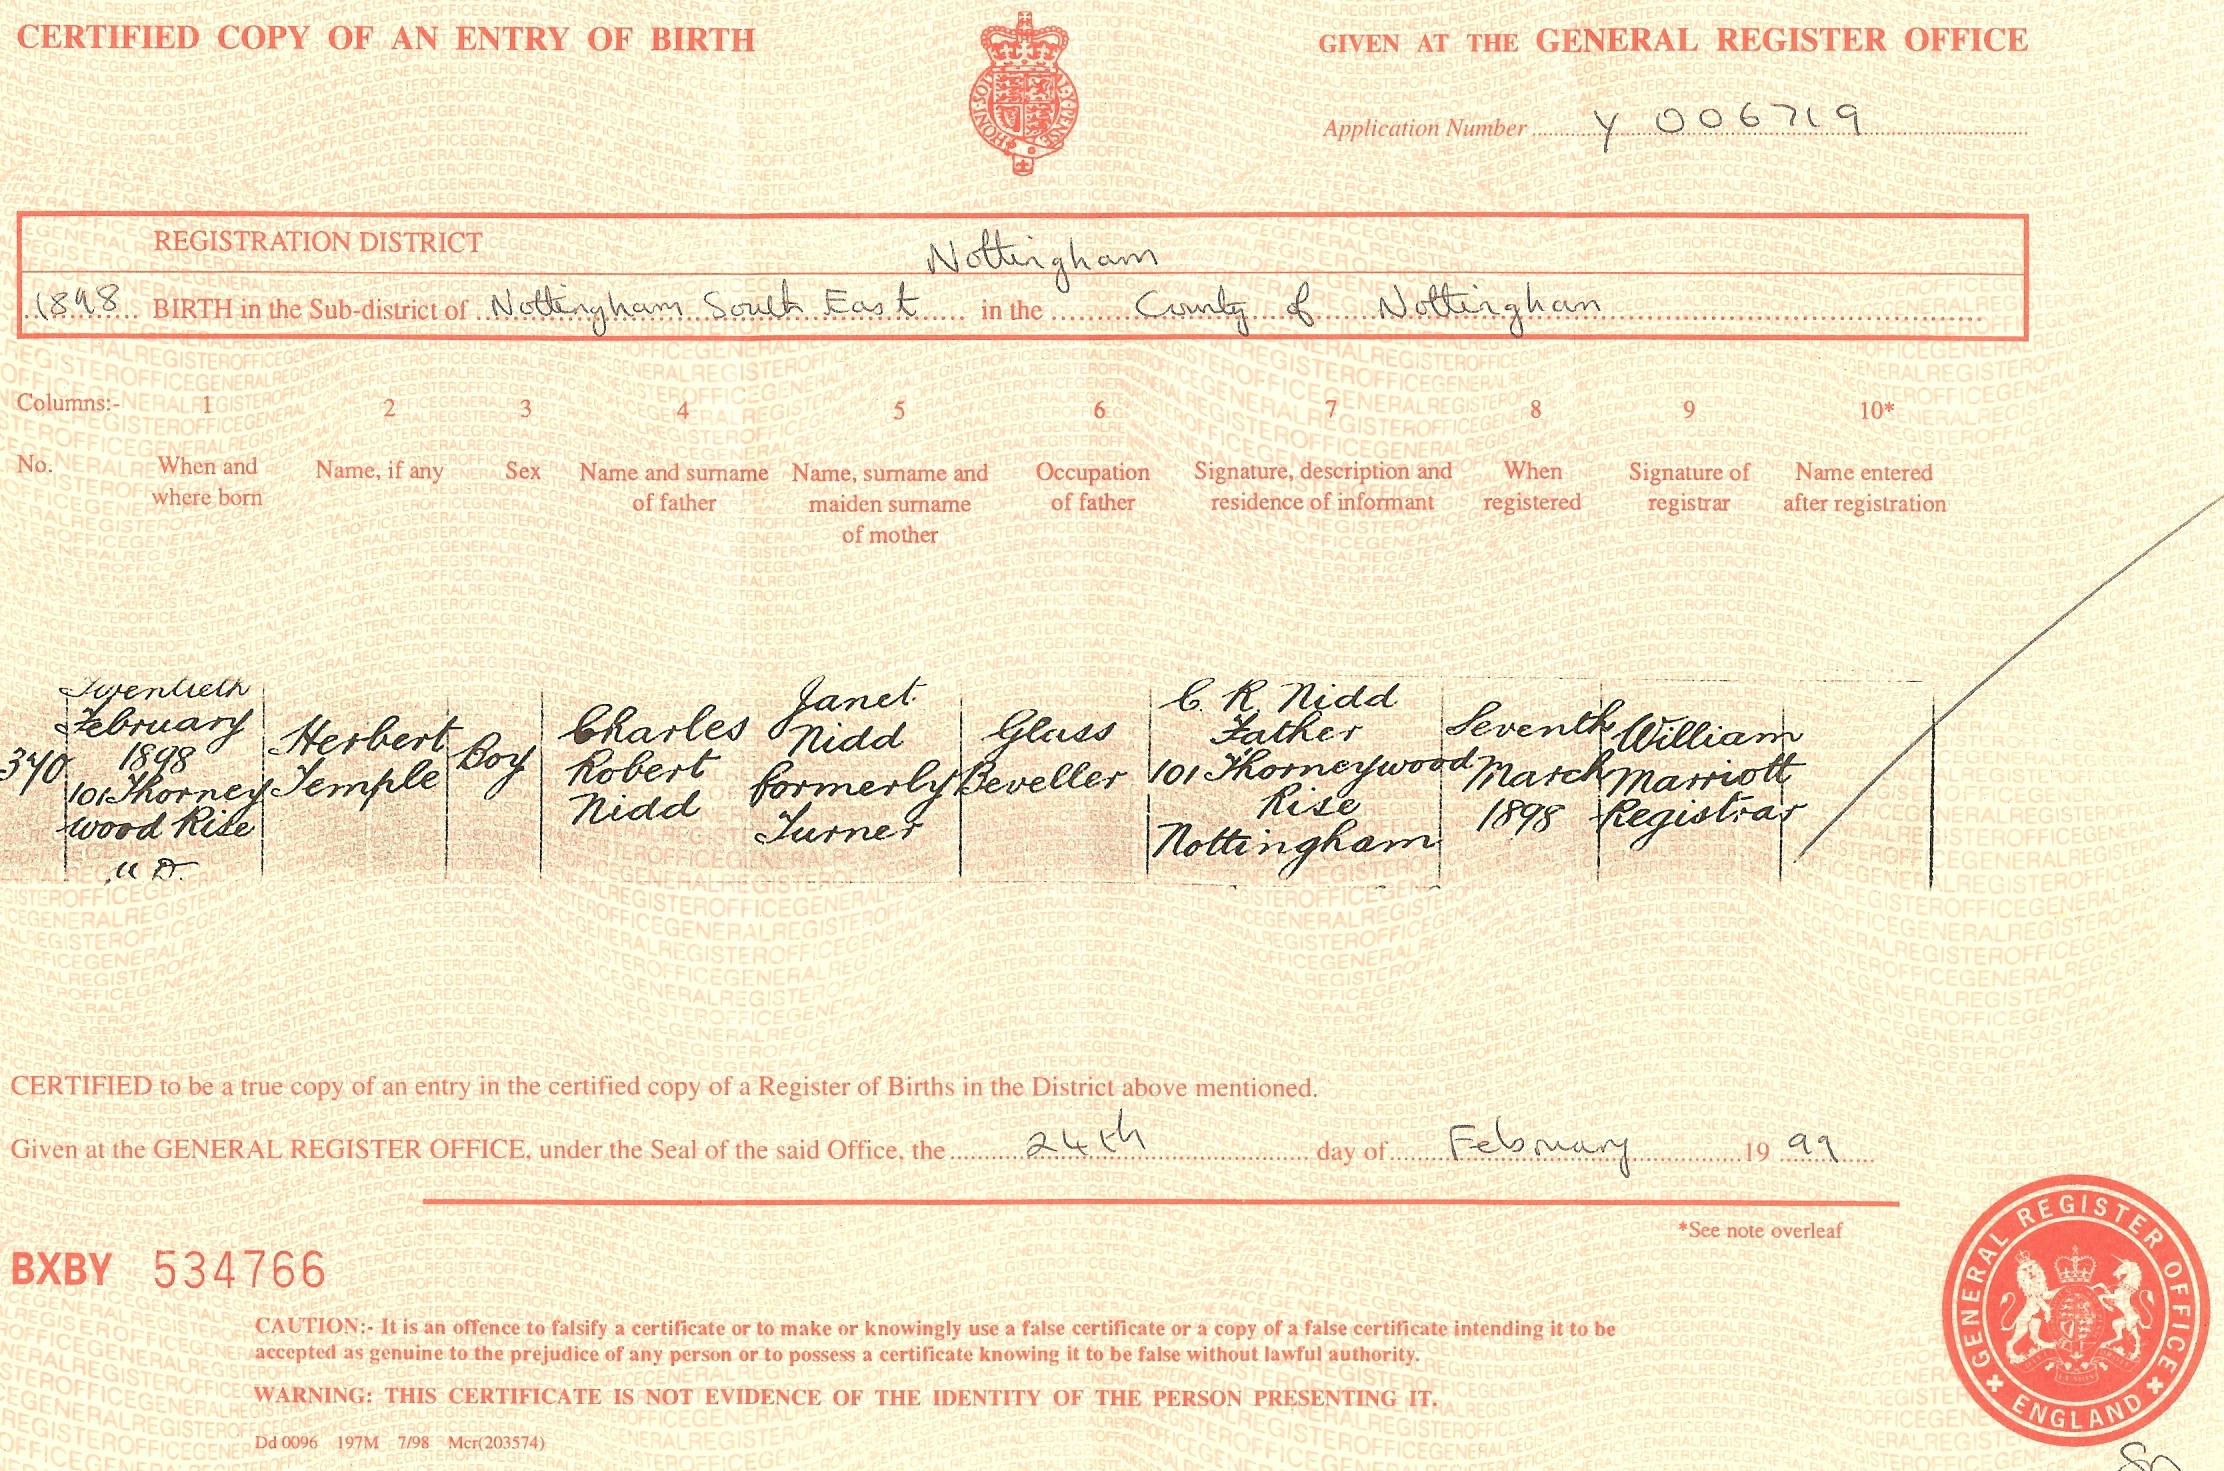 CERTIFIED COPY OF AN ENTRY OF BIRTH
GIVEN AT THE GENERAL REGISTER OFFICE
HONI SOI Y PENSE
Application Number Y 006719
REGISTRATION DISTRICT Nottingham
1898 BIRTH in the Sub-district of Nottingham South East in the County of Nottingham
Columns:- 1 2 3 4 5 6 7 8 9 10*
No.
When and
where born
Name, if any
Sex
Name and surname
of father
Name, surname and
maiden surname
of mother
Occupation
of father
Signature, description and
residence of informant
When
registered
Signature of
registrar
Name entered
after registration
340
Twentieth
February
1898
101 Thorney
wood Rise
U D.
Herbert
Temple
Boy
Charles
Robert
Nidd
Janet
Nidd
formerly
Turner
Glass
Beveller
C R Nidd
Father
101 Thorneywood
Rise
Nottingham
Seventh
March
1898
William
Marriott
Registrar
CERTIFIED to be a true copy of an entry in the certified copy of a Register of Births in the District above mentioned.
Given at the GENERAL REGISTER OFFICE, under the Seal of the said Office, the 24th day of February 19 99
*See note overleaf
BXBY 534766
CAUTION:- It is an offence to falsify a certificate or to make or knowingly use a false certificate or a copy of a false certificate intending it to be
accepted as genuine to the prejudice of any person or to possess a certificate knowing it to be false without lawful authority.
WARNING: THIS CERTIFICATE IS NOT EVIDENCE OF THE IDENTITY OF THE PERSON PRESENTING IT.
Dd 0096 197M 7/98 Mcr(203574)
GENERAL REGISTER OFFICE
ENGLAND